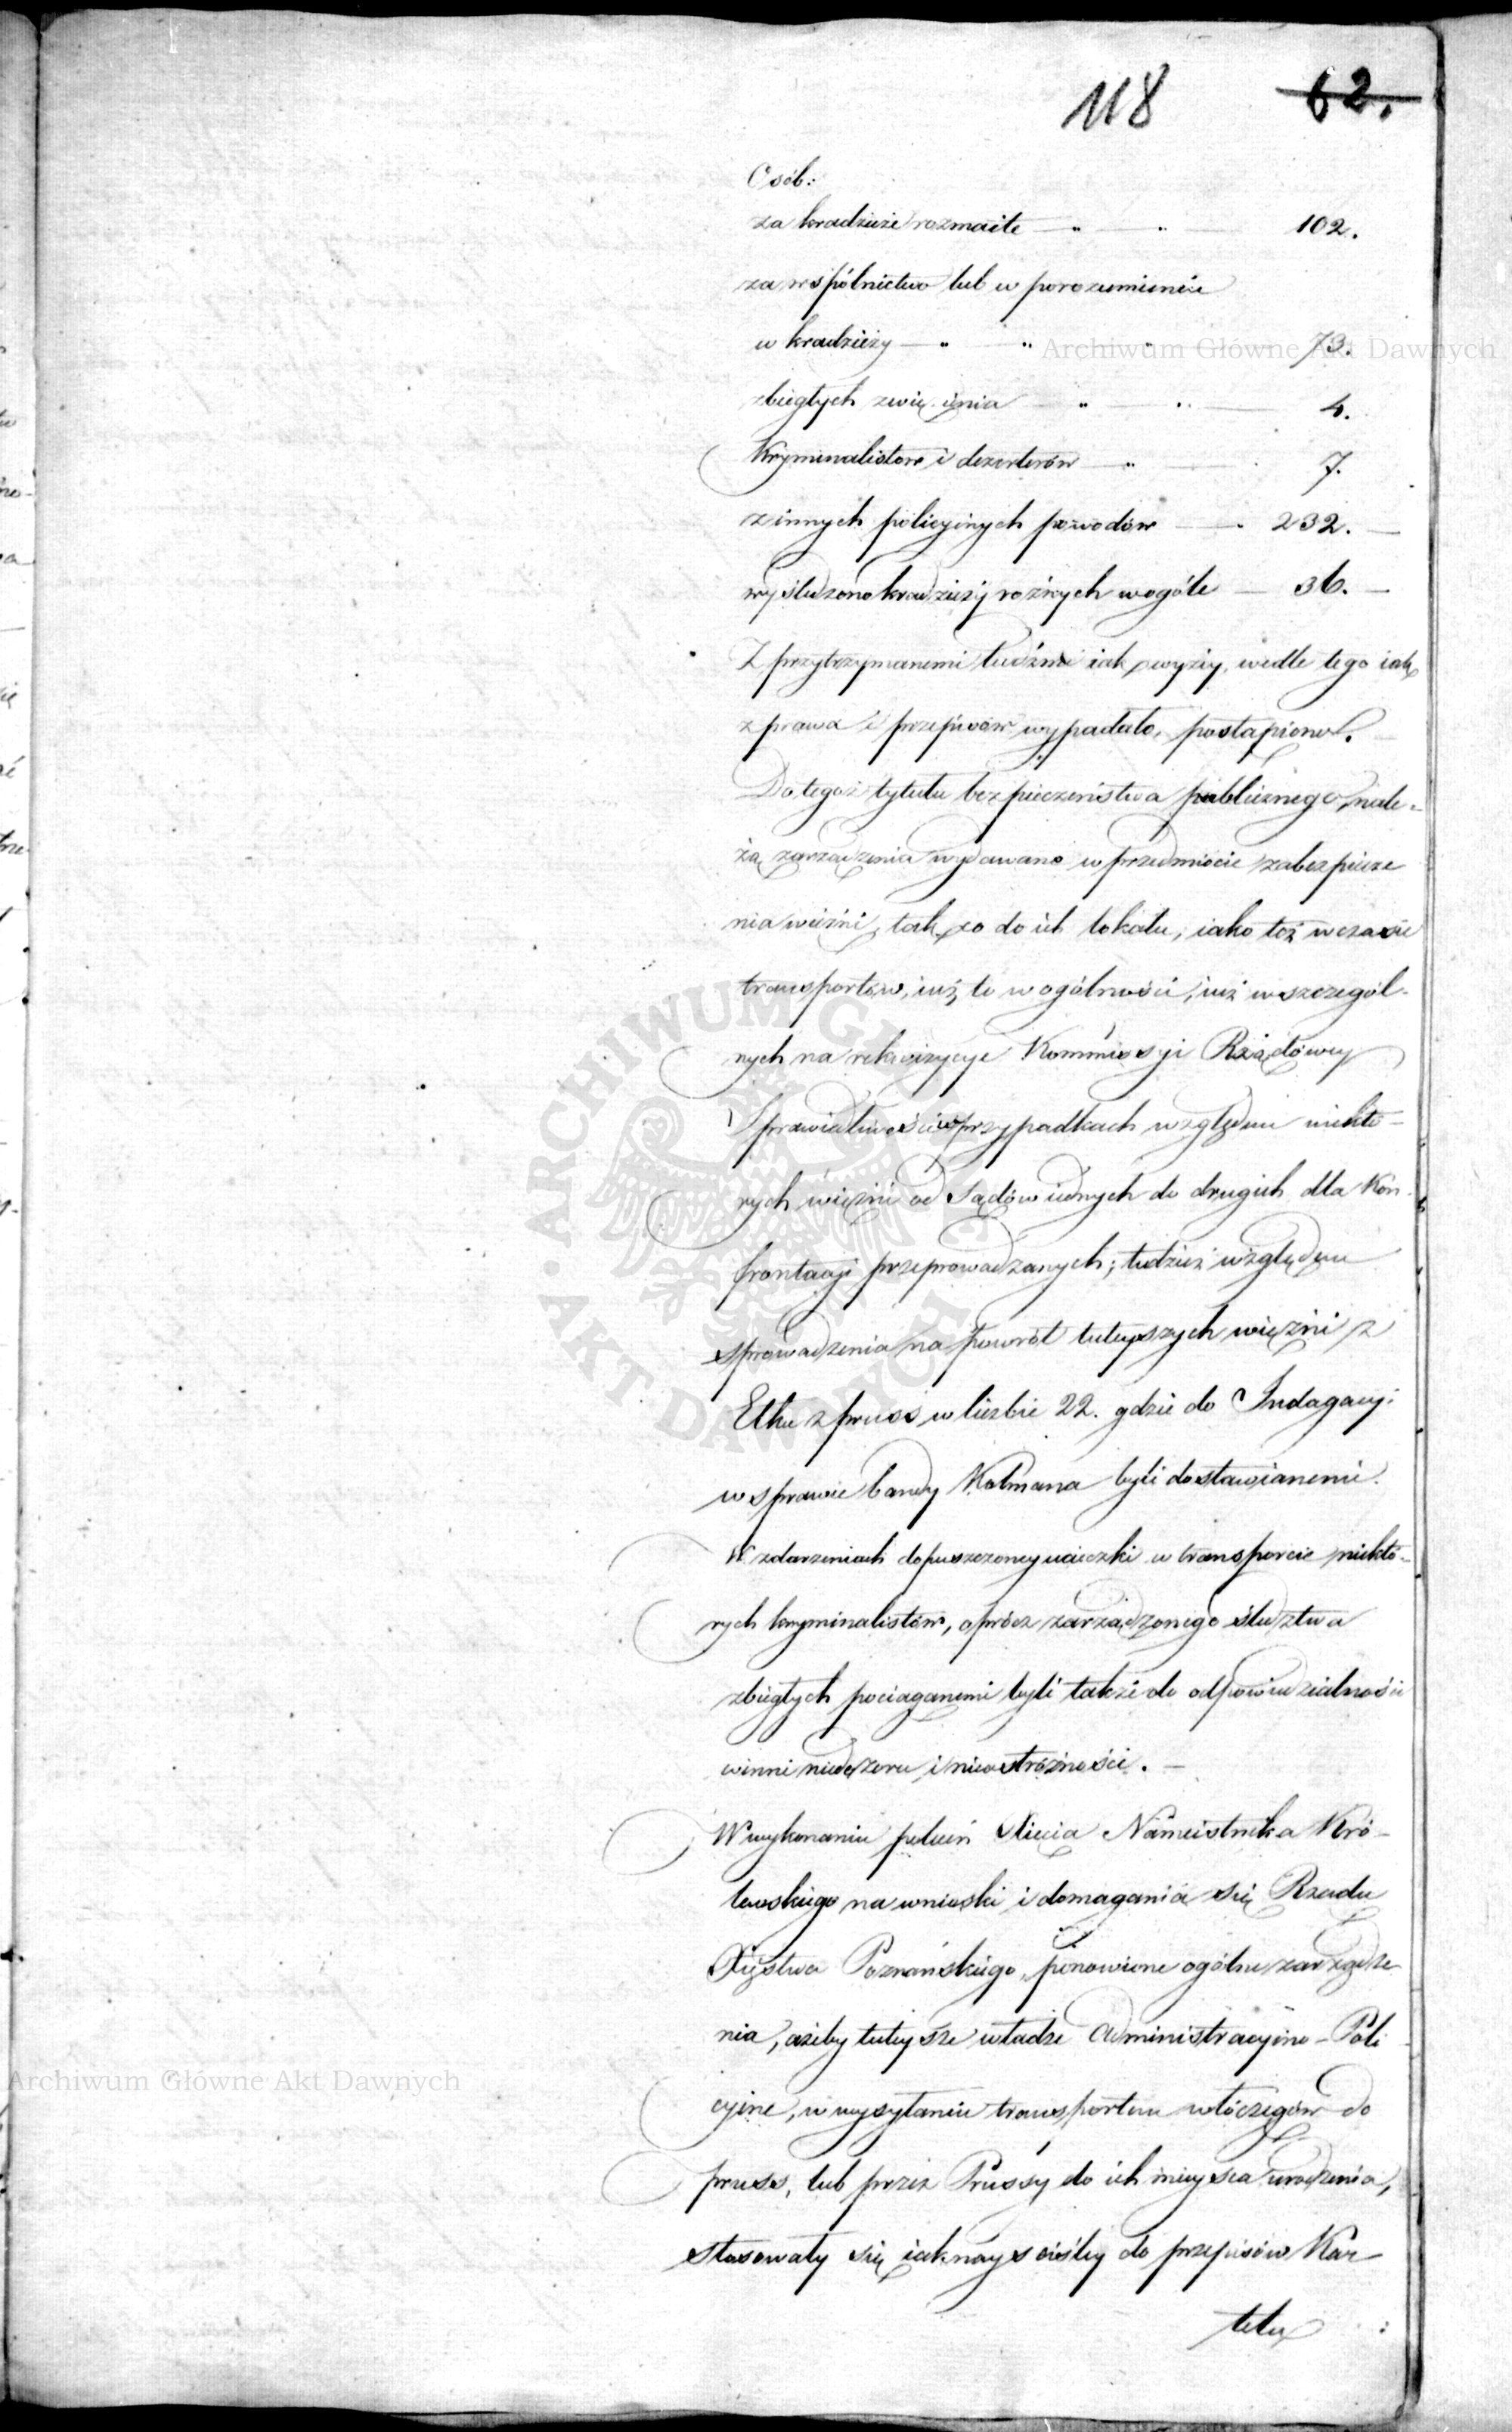 118 62.
Osób:
za kradzieże rozmaite — " — " — 102.
za wspólnictwo lub w porozumieniu
w kradzieży — " " " 73.
zbiegłych z więzienia — " — " — 4.
Kryminalistow i dezerterów — " — 7.
z innych policyinych powodów — 232. —
wyśledzono kradzieży rożnych wogóle — 36. —
Z przytrzymanemi ludźmi iak wyżey, wedle tego iak
z prawa i przepisów wypadało, postąpiono.
Do tegoż tytułu bezpieczeństwa publicznego, nale-
żą zarządzenia wydawane w przedmiocie zabezpiecze
nia więźni, tak co do ich lokalu, iako też w czasie
transportów, iuż to w ogólności, iuż w szczegól-
nych na rekwizycye Kommissyi Rządowey
Sprawiedliwości w przypadkach względem niektó-
rych więźni od Sądów iednych do drugich dla Kon-
frontacyi przeprowadzanych; tudzież względem
sprowadzenia na powrót tuteyszych więźni z
Ełku z pruss w liczbie 22. gdzie do Indagacyi
w sprawie bandy Kolmana byli dostawianemi.
W zdarzeniach dopuszczoney ucieczki w transporcie niektó-
rych kryminalistów, oprócz zarządzonego śledztwa
zbiegłych pociąganemi byli także do odpowiedzialności
winni niedozoru i nieostróżności. —
W wykonaniu poleceń Xięcia Namiestnika Kró-
lewskiego na wnioski i domagania się Rządu
Xięstwa Poznańskiego, ponowione ogólne zarządze-
nia, ażeby tuteysze władze Administracyino-Poli
cyine, w wysyłaniu transportem włóczęgów do
pruss, lub przez Prussy do ich mieysca urodzenia,
stosowały się iaknayściśley do przepisów Kar-
telu
Archiwum Główne Akt Dawnych
Archiwum Główne Akt Dawnych
ARCHIWUM GŁÓWNE AKT DAWNYCH